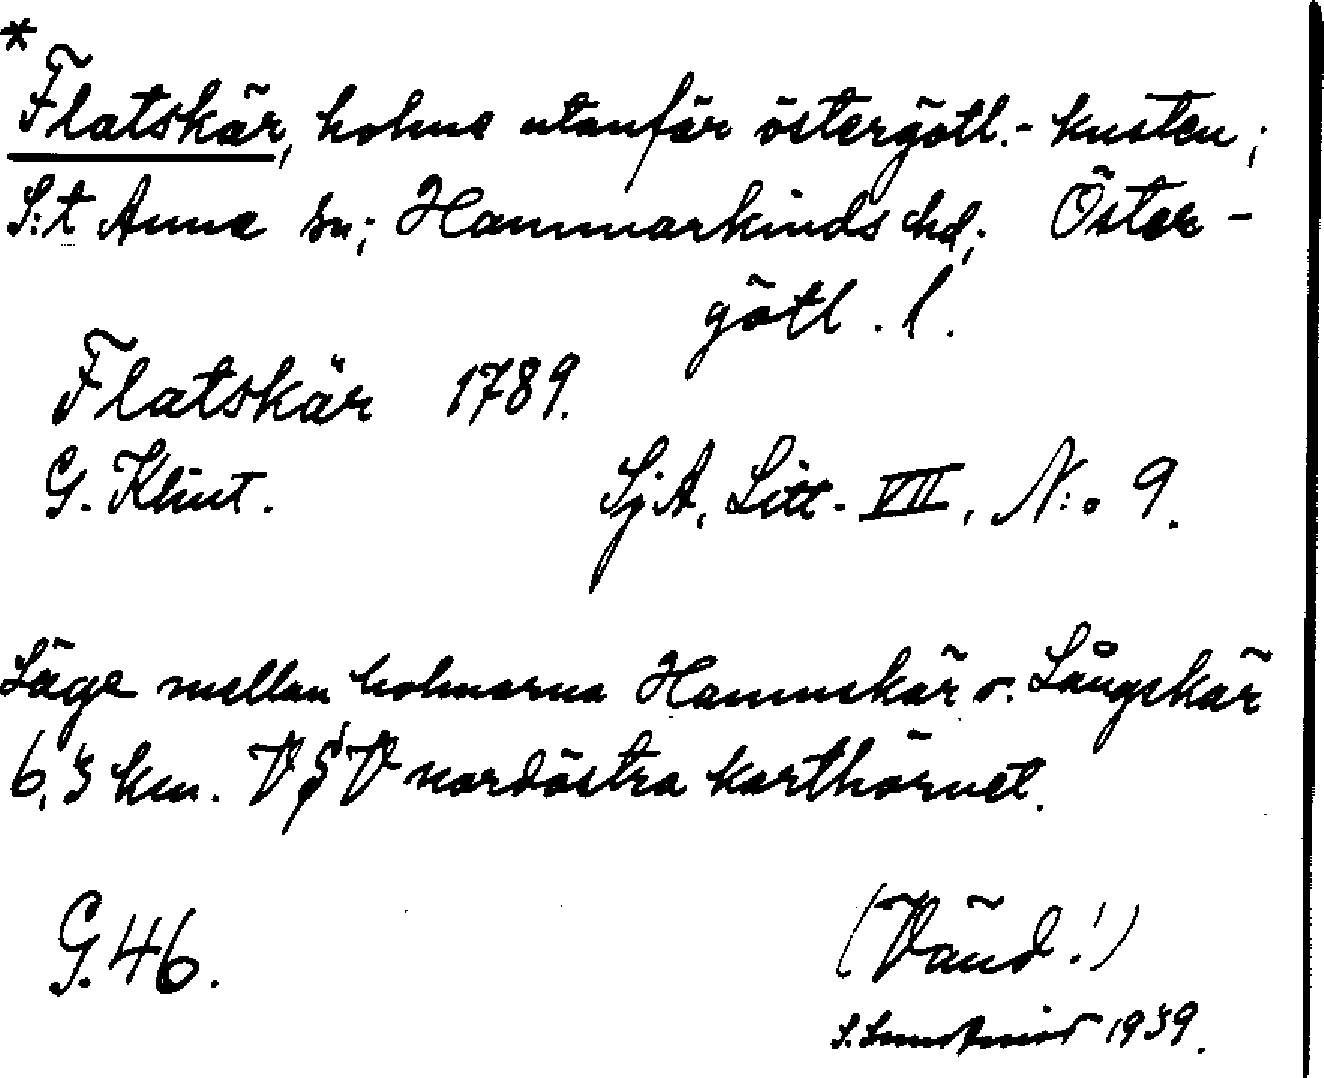 *
Flatskär, holme utanför östergötl.-kusten;
S:t Anna sn; Hammarkinds hd; Öster-
götl. l.
Flatskär 1789.
G. Klint. SjA, Litt. VII, N:o 9.
Läge mellan holmarna Hamnskär o. Långskär
6,5 km. VSV nordöstra karthörnet.
G. 46. (Vänd!)
S. 1939.